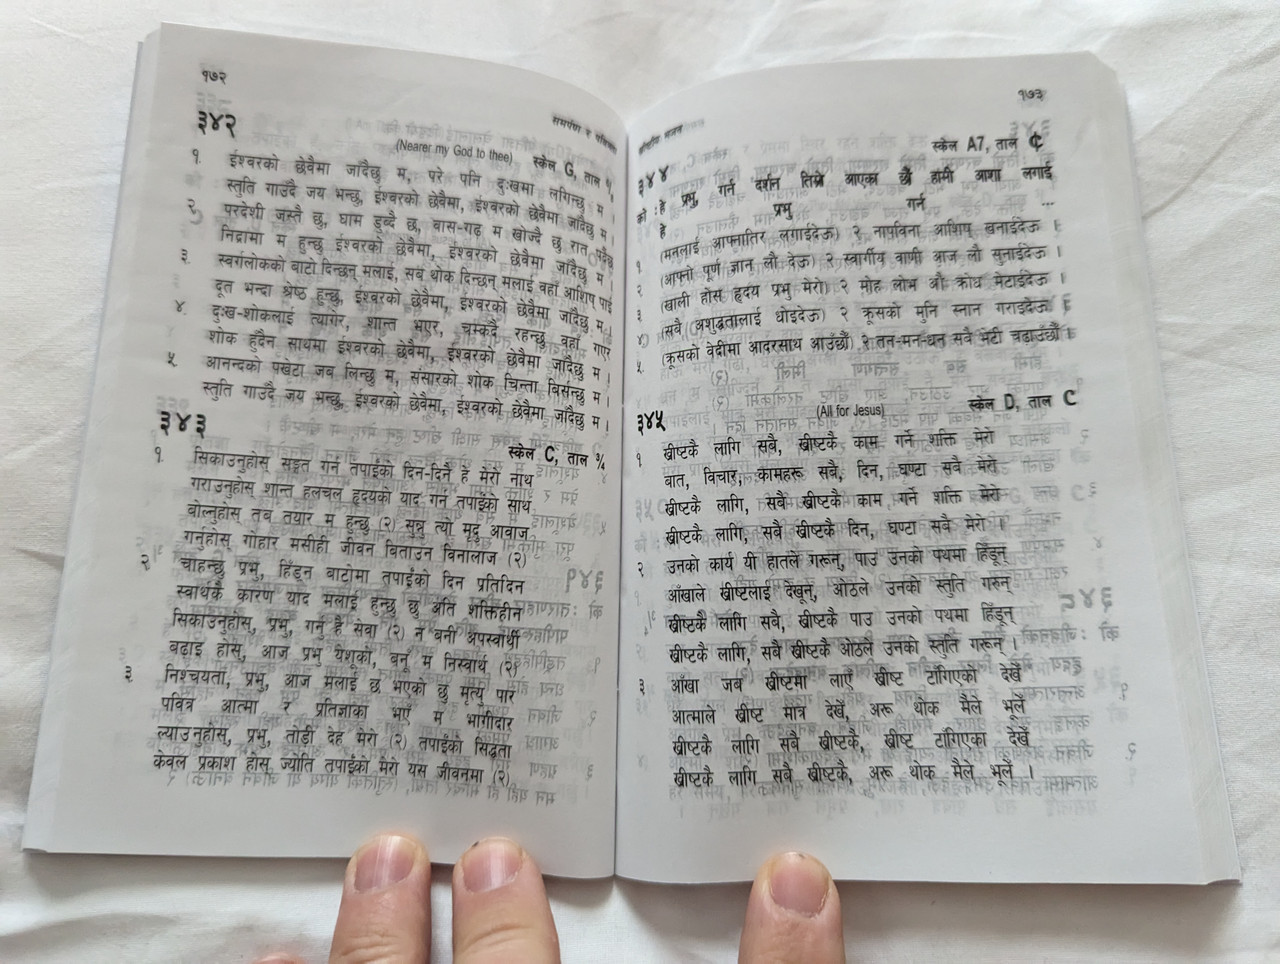 १७२
समर्पण र
३४२
(Nearer my God to thee) स्केल G, ताल
१. ईश्वरको छेवैमा जाँदैछु म, परे पनि दुःखमा लगिन्छु म ।
स्तुति गाउँदै जय भन्छु, ईश्वरको छेवैमा, ईश्वरको छेवैमा जाँदैछु म ।
२. परदेशी जस्तै छु, घाम डुब्दै छ, वास-गढ म खोज्दै छु रात पर्दैछ
निद्रामा म हुन्छु ईश्वरको छेवैमा, ईश्वरको छेवैमा जाँदैछु म ।
३. स्वर्गलोकको बाटो दिन्छन् मलाई, सबै थोक दिन्छन् मलाई वहाँ आशिष् पाई
दूत भन्दा श्रेष्ठ हुन्छु, ईश्वरको छेवैमा, ईश्वरको छेवैमा जाँदैछु म ।
४. दुःख-शोकलाई त्यागेर, शान्त भएर, चम्कँदै रहन्छु वहाँ गएर
शोक हुँदैन साथमा ईश्वरको छेवैमा, ईश्वरको छेवैमा जाँदैछु म ।
५ आनन्दको पखेटा जब लिन्छु म, संसारको शोक चिन्ता बिर्सन्छु म ।
स्तुति गाउँदै जय भन्छु, ईश्वरको छेवैमा, ईश्वरको छेवैमा जाँदैछु म ।
३४३
स्केल C, ताल ३/४
१. सिकाउनुहोस् सङ्गत गर्न तपाईंको दिन-दिनै हे मेरो नाथ
गराउनुहोस् शान्त हलचल हृदयको याद गर्न तपाईंको साथ
बोल्नुहोस् तब तयार म हुन्छु (२) सुन्नु त्यो मृदु आवाज
गर्नुहोस् गोहार मसीही जीवन बिताउन बिनालाज (२)
२ चाहन्छु प्रभु, हिँड्न बाटोमा तपाईंको दिन प्रतिदिन
स्वार्थकै कारण याद मलाई हुन्छु छु अति शक्तिहीन
सिकाउनुहोस्, प्रभु, गर्नु है सेवा (२) न बनी अपस्वार्थी
बढाइ होस्, आज प्रभु येशूको, बनूँ म निस्वार्थ (२)
३ निश्चयता, प्रभु, आज मलाई छ भएको छु मृत्यु पार
पवित्र आत्मा र प्रतिज्ञाका भएँ म भागीदार
ल्याउनुहोस्, प्रभु, तोडी देह मेरो (२) तपाईंको सिद्धता
केवल प्रकाश होस् ज्योति तपाईंको मेरो यस जीवनमा (२)
१७३
भजन
३४४ स्केल A7, ताल C
को : हे प्रभु, गर्न दर्शन तिम्रो आएका छौं हामी आशा लगाई
हे प्रभु गर्न ...
१ (मनलाई आफ्नातिर लगाईदेऊ) २ नापविना आशिष् खनाईदेऊ ।
२ (आफ्नो पूर्ण ज्ञान लौ देऊ) २ स्वार्गीय वाणी आज लौ सुनाईदेऊ ।
३ (खाली होस् हृदय प्रभु मेरो) २ मोह लोभ औ क्रोध मेटाईदेऊ ।
४ (सबै अशुद्धतालाई धोइदेऊ) २ क्रूसको मुनि स्नान गराइदेऊ ।
५ (क्रूसको वेदीमा आदरसाथ आउँछौं) २ तन-मन-धन सबै भेटी चढाउँछौं ।
३४५ (All for Jesus) स्केल D, ताल C
१ ख्रीष्टकै लागि सबै, ख्रीष्टकै काम गर्ने शक्ति मेरो
बात, विचार, कामहरू सबै, दिन, घण्टा सबै मेरो
ख्रीष्टकै लागि, सबै ख्रीष्टकै काम गर्ने शक्ति मेरो
ख्रीष्टकै लागि, सबै ख्रीष्टकै दिन, घण्टा सबै मेरो ।
२ उनको कार्य यी हातले गरून्, पाउ उनको पथमा हिँडून्
आँखाले ख्रीष्टलाई देखून्, ओठले उनको स्तुति गरून्
ख्रीष्टकै लागि सबै, ख्रीष्टकै पाउ उनको पथमा हिँडून्
ख्रीष्टकै लागि, सबै ख्रीष्टकै ओठले उनको स्तुति गरून् ।
३ आँखा जब ख्रीष्टमा लाएँ ख्रीष्ट टाँगिएको देखेँ
आत्माले ख्रीष्ट मात्र देखेँ, अरू थोक मैले भूलेँ
ख्रीष्टकै लागि सबै ख्रीष्टकै, ख्रीष्ट टाँगिएका देखेँ
ख्रीष्टकै लागि सबै ख्रीष्टकै, अरू थोक मैले भूलेँ ।